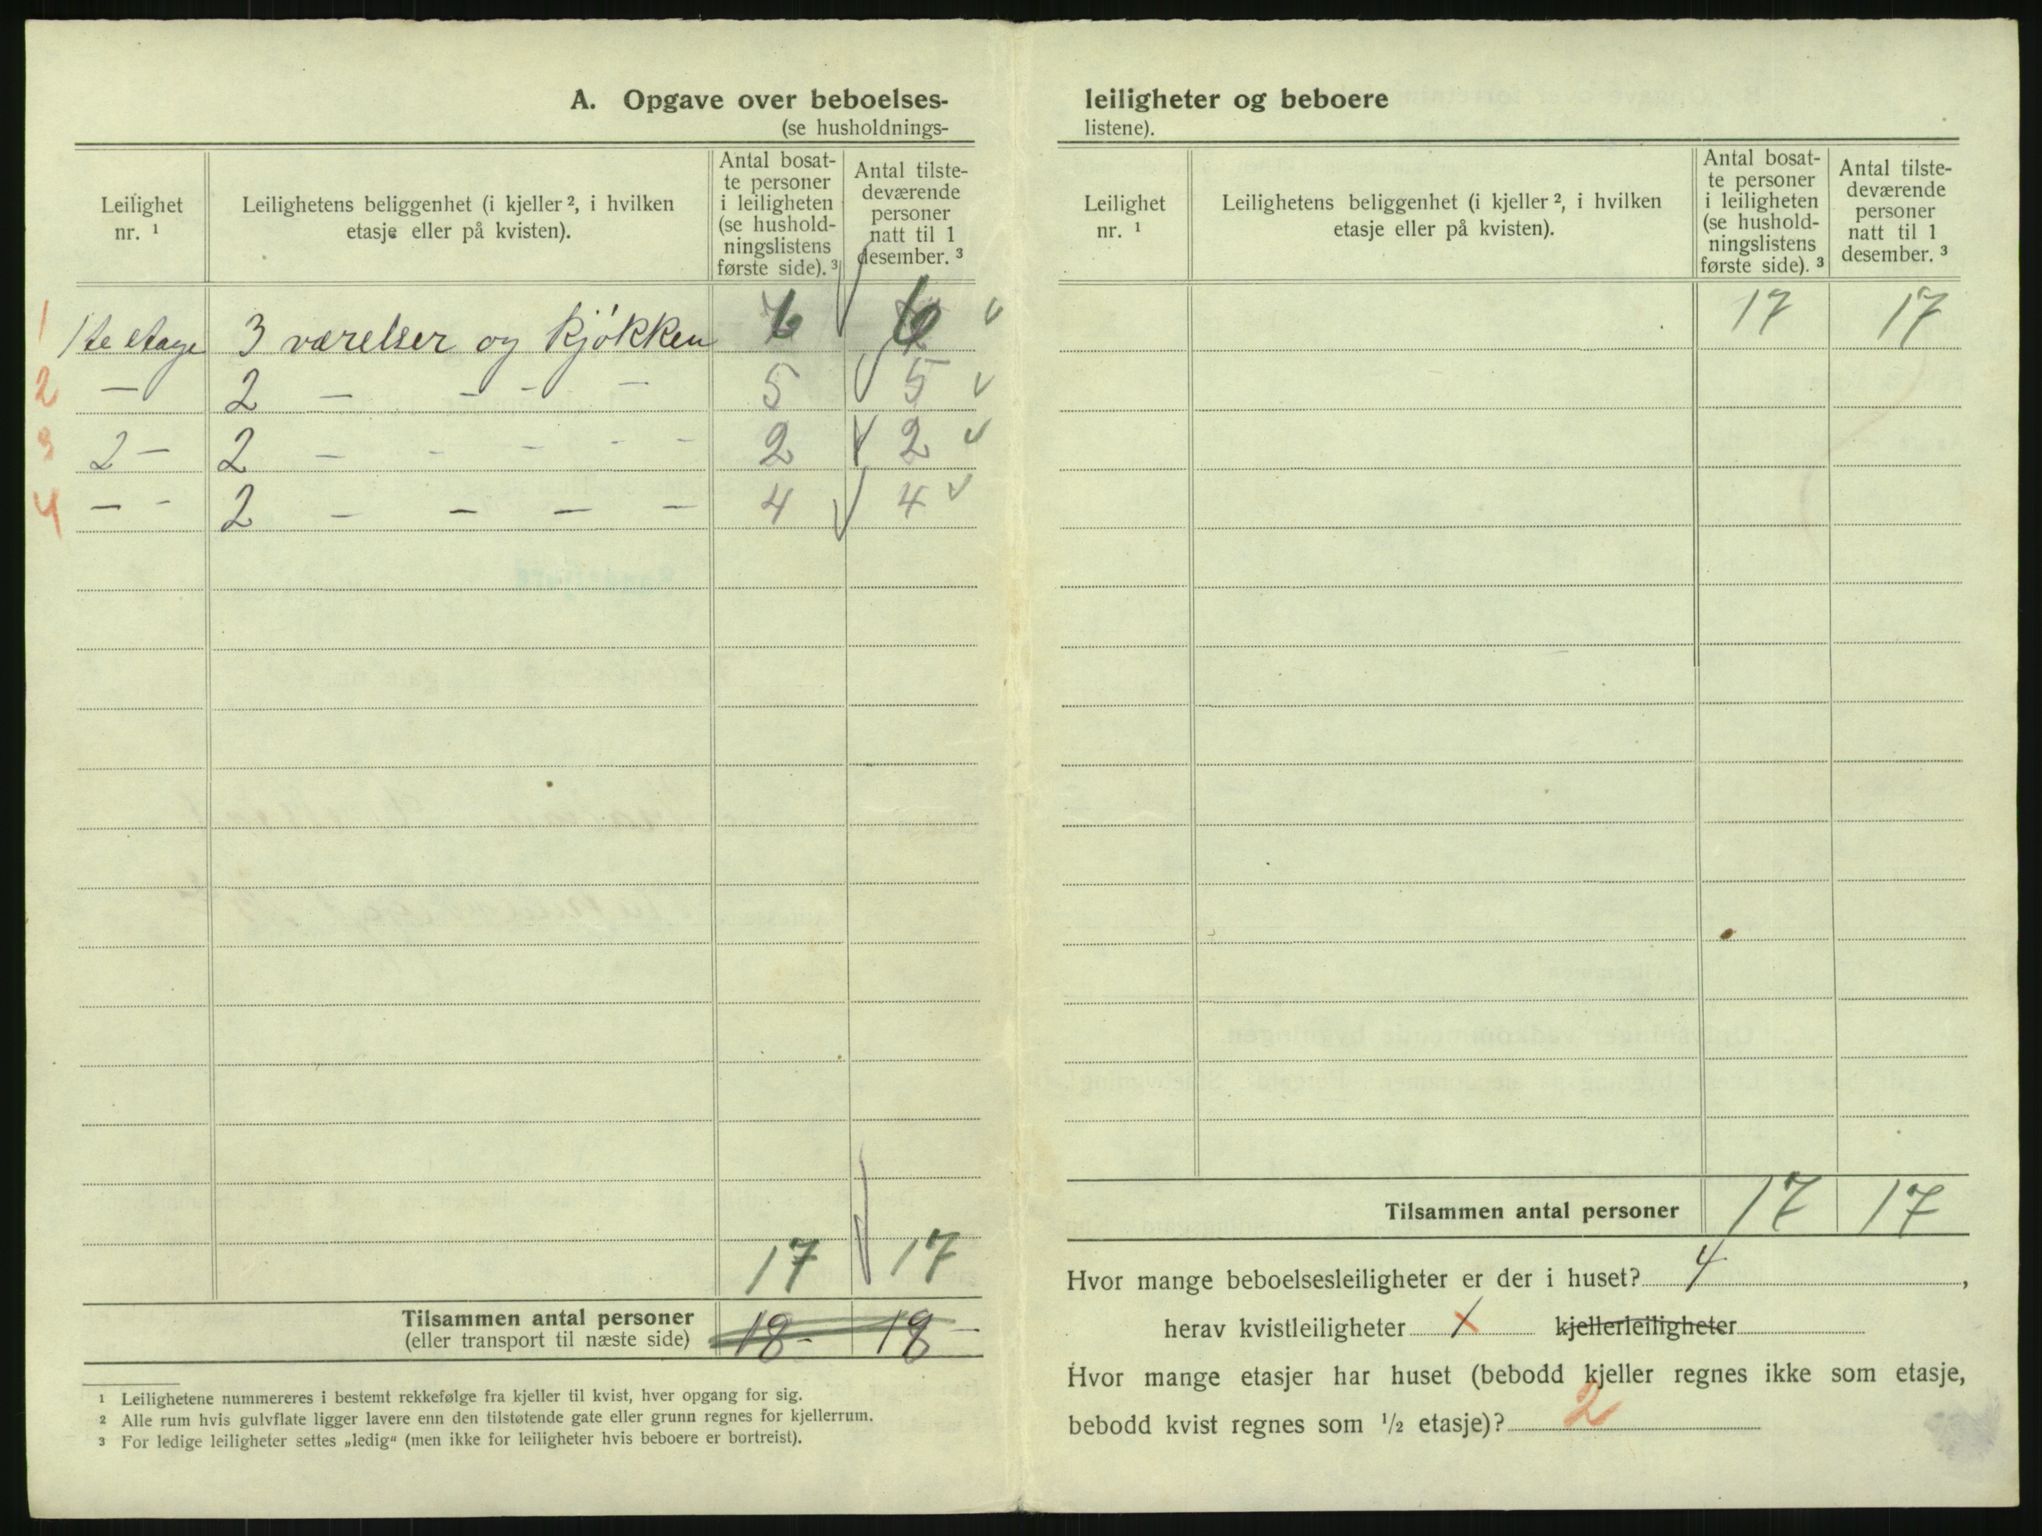 A. Opgave over beboelses-
(se husholdnings-
Leilighet
nr. ¹
Leilighetens beliggenhet (i kjeller ², i hvilken
etasje eller på kvisten).
Antal bosat-
te personer
i leiligheten
(se hushold-
ningslistens
første side). ³
Antal tilste-
deværende
personer
natt til 1
desember. ³
1 1ste etage 3 værelser og kjøkken 6 6 √
2 — 2 — - - — 5 5 √
3 2 — 2 — - - - - 2 2 √
4 — - 2 — — — — 4 4 √
17 17
Tilsammen antal personer 18- 18 —
(eller transport til næste side)
¹ Leilighetene nummereres i bestemt rekkefølge fra kjeller til kvist, hver opgang for sig.
² Alle rum hvis gulvflate ligger lavere enn den tilstøtende gate eller grunn regnes for kjellerrum.
³ For ledige leiligheter settes „ledig“ (men ikke for leiligheter hvis beboere er bortreist).
leiligheter og beboere
listene).
Leilighet
nr. ¹
Leilighetens beliggenhet (i kjeller ², i hvilken
etasje eller på kvisten).
Antal bosat-
te personer
i leiligheten
(se hushold-
ningslistens
første side). ³
Antal tilste-
deværende
personer
natt til 1
desember. ³
17 17
Tilsammen antal personer 17 17
Hvor mange beboelsesleiligheter er der i huset? 4,
herav kvistleiligheter x kjellerleiligheter
Hvor mange etasjer har huset (bebodd kjeller regnes ikke som etasje,
bebodd kvist regnes som ½ etasje)? 2